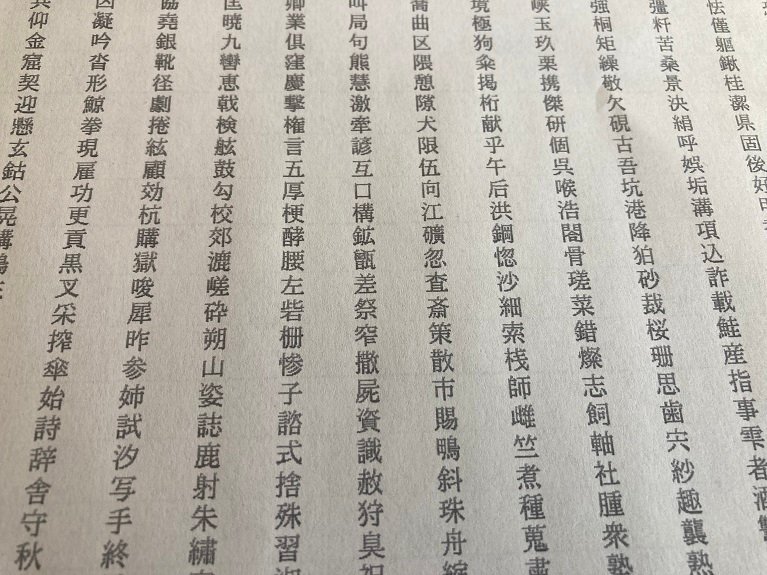 共凶協匡卿叫喬境峡強彊怯
仰凝堯暁業局曲極玉桐粁僅
金吟銀九倶句区狗玖矩苦躯
窟沓靴轡窪熊隈粂栗繰桑鍬
契形径恵慶慧憩掲携敬景桂
迎鯨劇戟撃激隙桁傑欠決潔
懸拳捲検権牽犬献研硯絹県
玄現絃舷言諺限乎個古呼固
鈷雇顧鼓五互伍午呉吾娯後
公功効勾厚口向后喉坑垢好
晃更杭校梗構江洪浩港溝
講貢購郊酵鉱礦鋼閤降項
鴻黒獄漉腰甑忽惚骨狛込
叉唆嵯左差査沙瑳砂詐
采犀砕砦祭斎細菜裁載
搾昨朔柵窄策索錯桜鮭
傘参山惨撒散桟燦珊産
始姉姿子屍市師志思指
詩試誌諮資賜雌飼歯事
辞汐鹿式識鴫竺軸宍雫
舎写射捨赦斜煮社紗者
守手朱殊狩珠種腫趣酒
秋終繡習臭舟蒐衆襲
熟熟